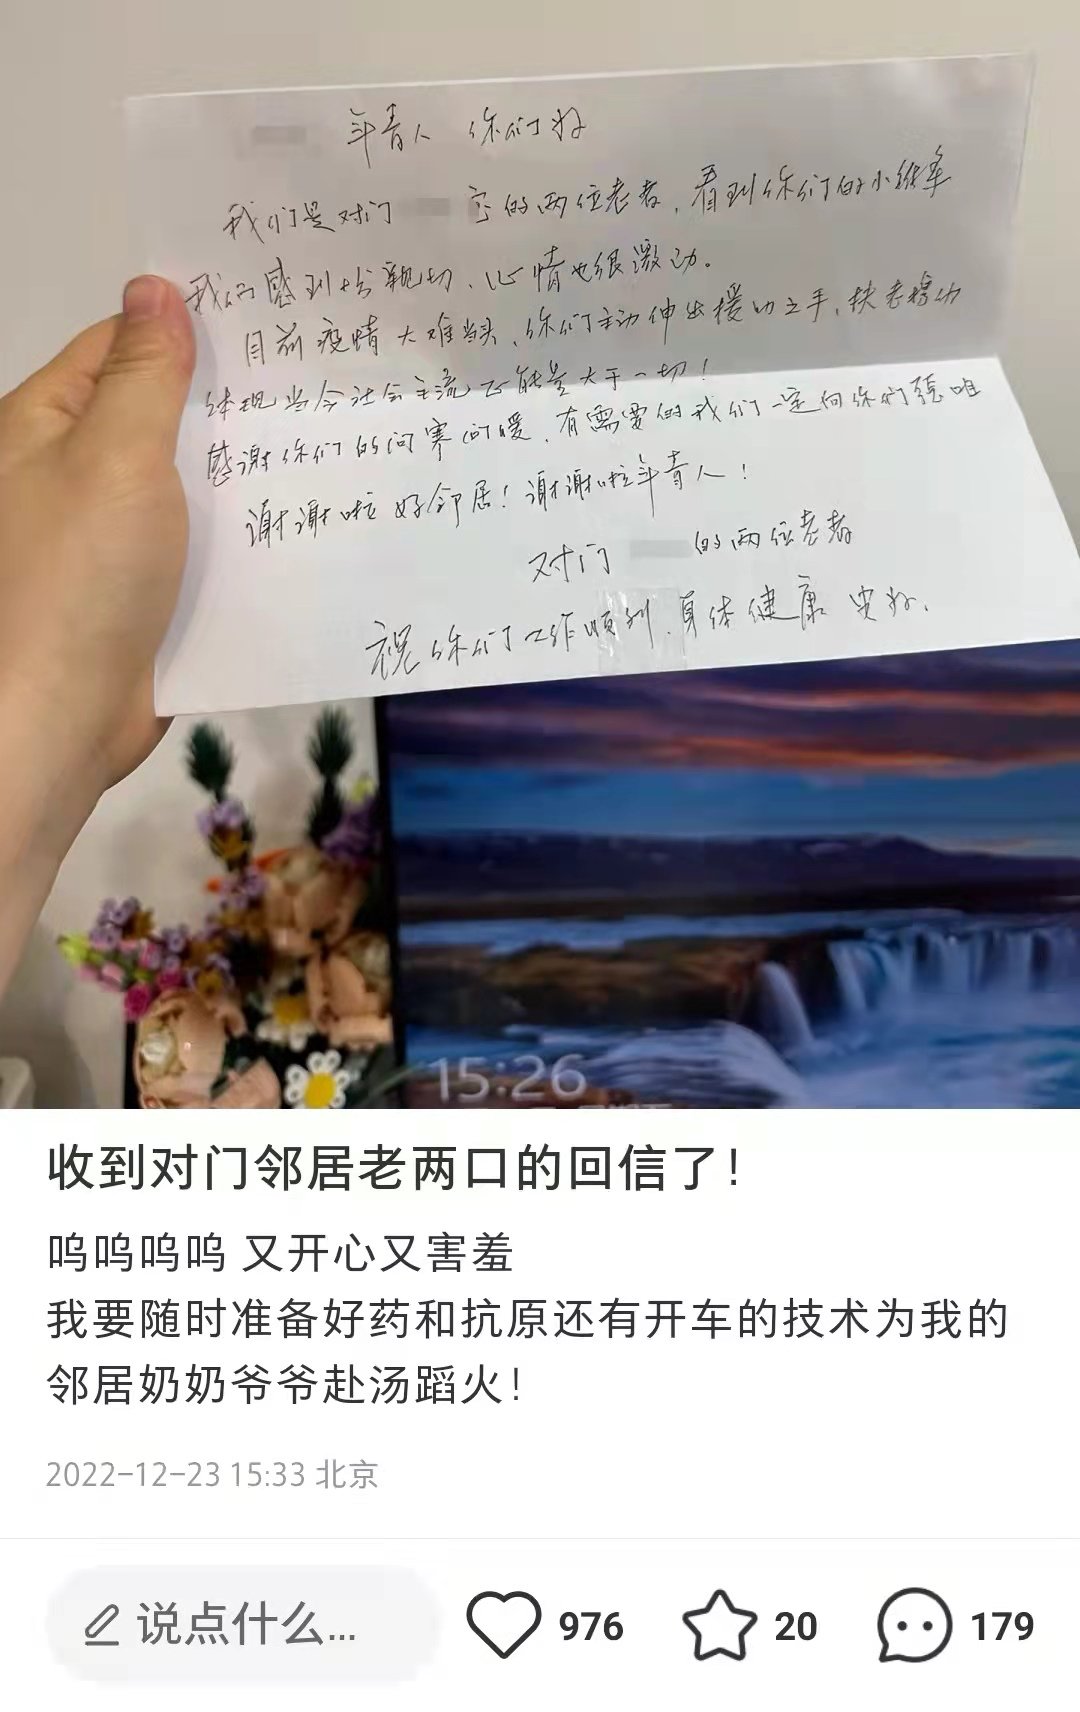 年青人 你们好
我们是对门 室的两位老者，看到你们的小纸条
我们感到十分亲切、心情也很激动。
目前疫情大难当头、你们主动伸出援助之手，扶老携幼
体现当今社会主流正能量大于一切！
感谢你们的问寒问暖，有需要的我们一定向你们
谢谢啦好邻居！谢谢啦年青人！
对门 的两位老者
祝你们工作顺利，身体健康
15:26
收到对门邻居老两口的回信了！
呜呜呜呜 又开心又害羞
我要随时准备好药和抗原还有开车的技术为我的
邻居奶奶爷爷赴汤蹈火！
2022-12-23 15:33 北京
说点什么...
976
20
179